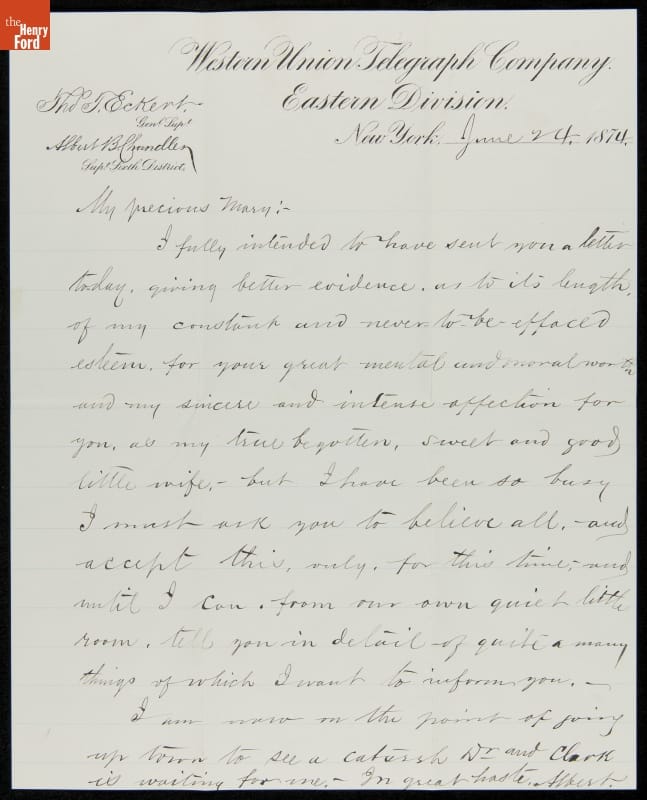 the
Henry
Ford
Western Union Telegraph Company.
Eastern Division.
Tho. T. Eckert.
Genl. Supt.
Albert B. Chandler
Supt. Sixth District.
New York, June 24. 1874.
My precious Mary:-
I fully intended to have sent you a letter
today, giving better evidence, as to its length,
of my constant and never-to-be-effaced
esteem, for your great mental and moral worth
and my sincere and intense affection for
you, as my true begotten, sweet and good
little wife,- but I have been so busy
I must ask you to believe all,- and
accept this, only, for this time,- and
until I can, from our own quiet little
room, tell you in detail of quite a many
things of which I want to inform you.-
I am now on the point of going
up town to see a catarrh Dr and Clark
is waiting for me.- In great haste, Albert.